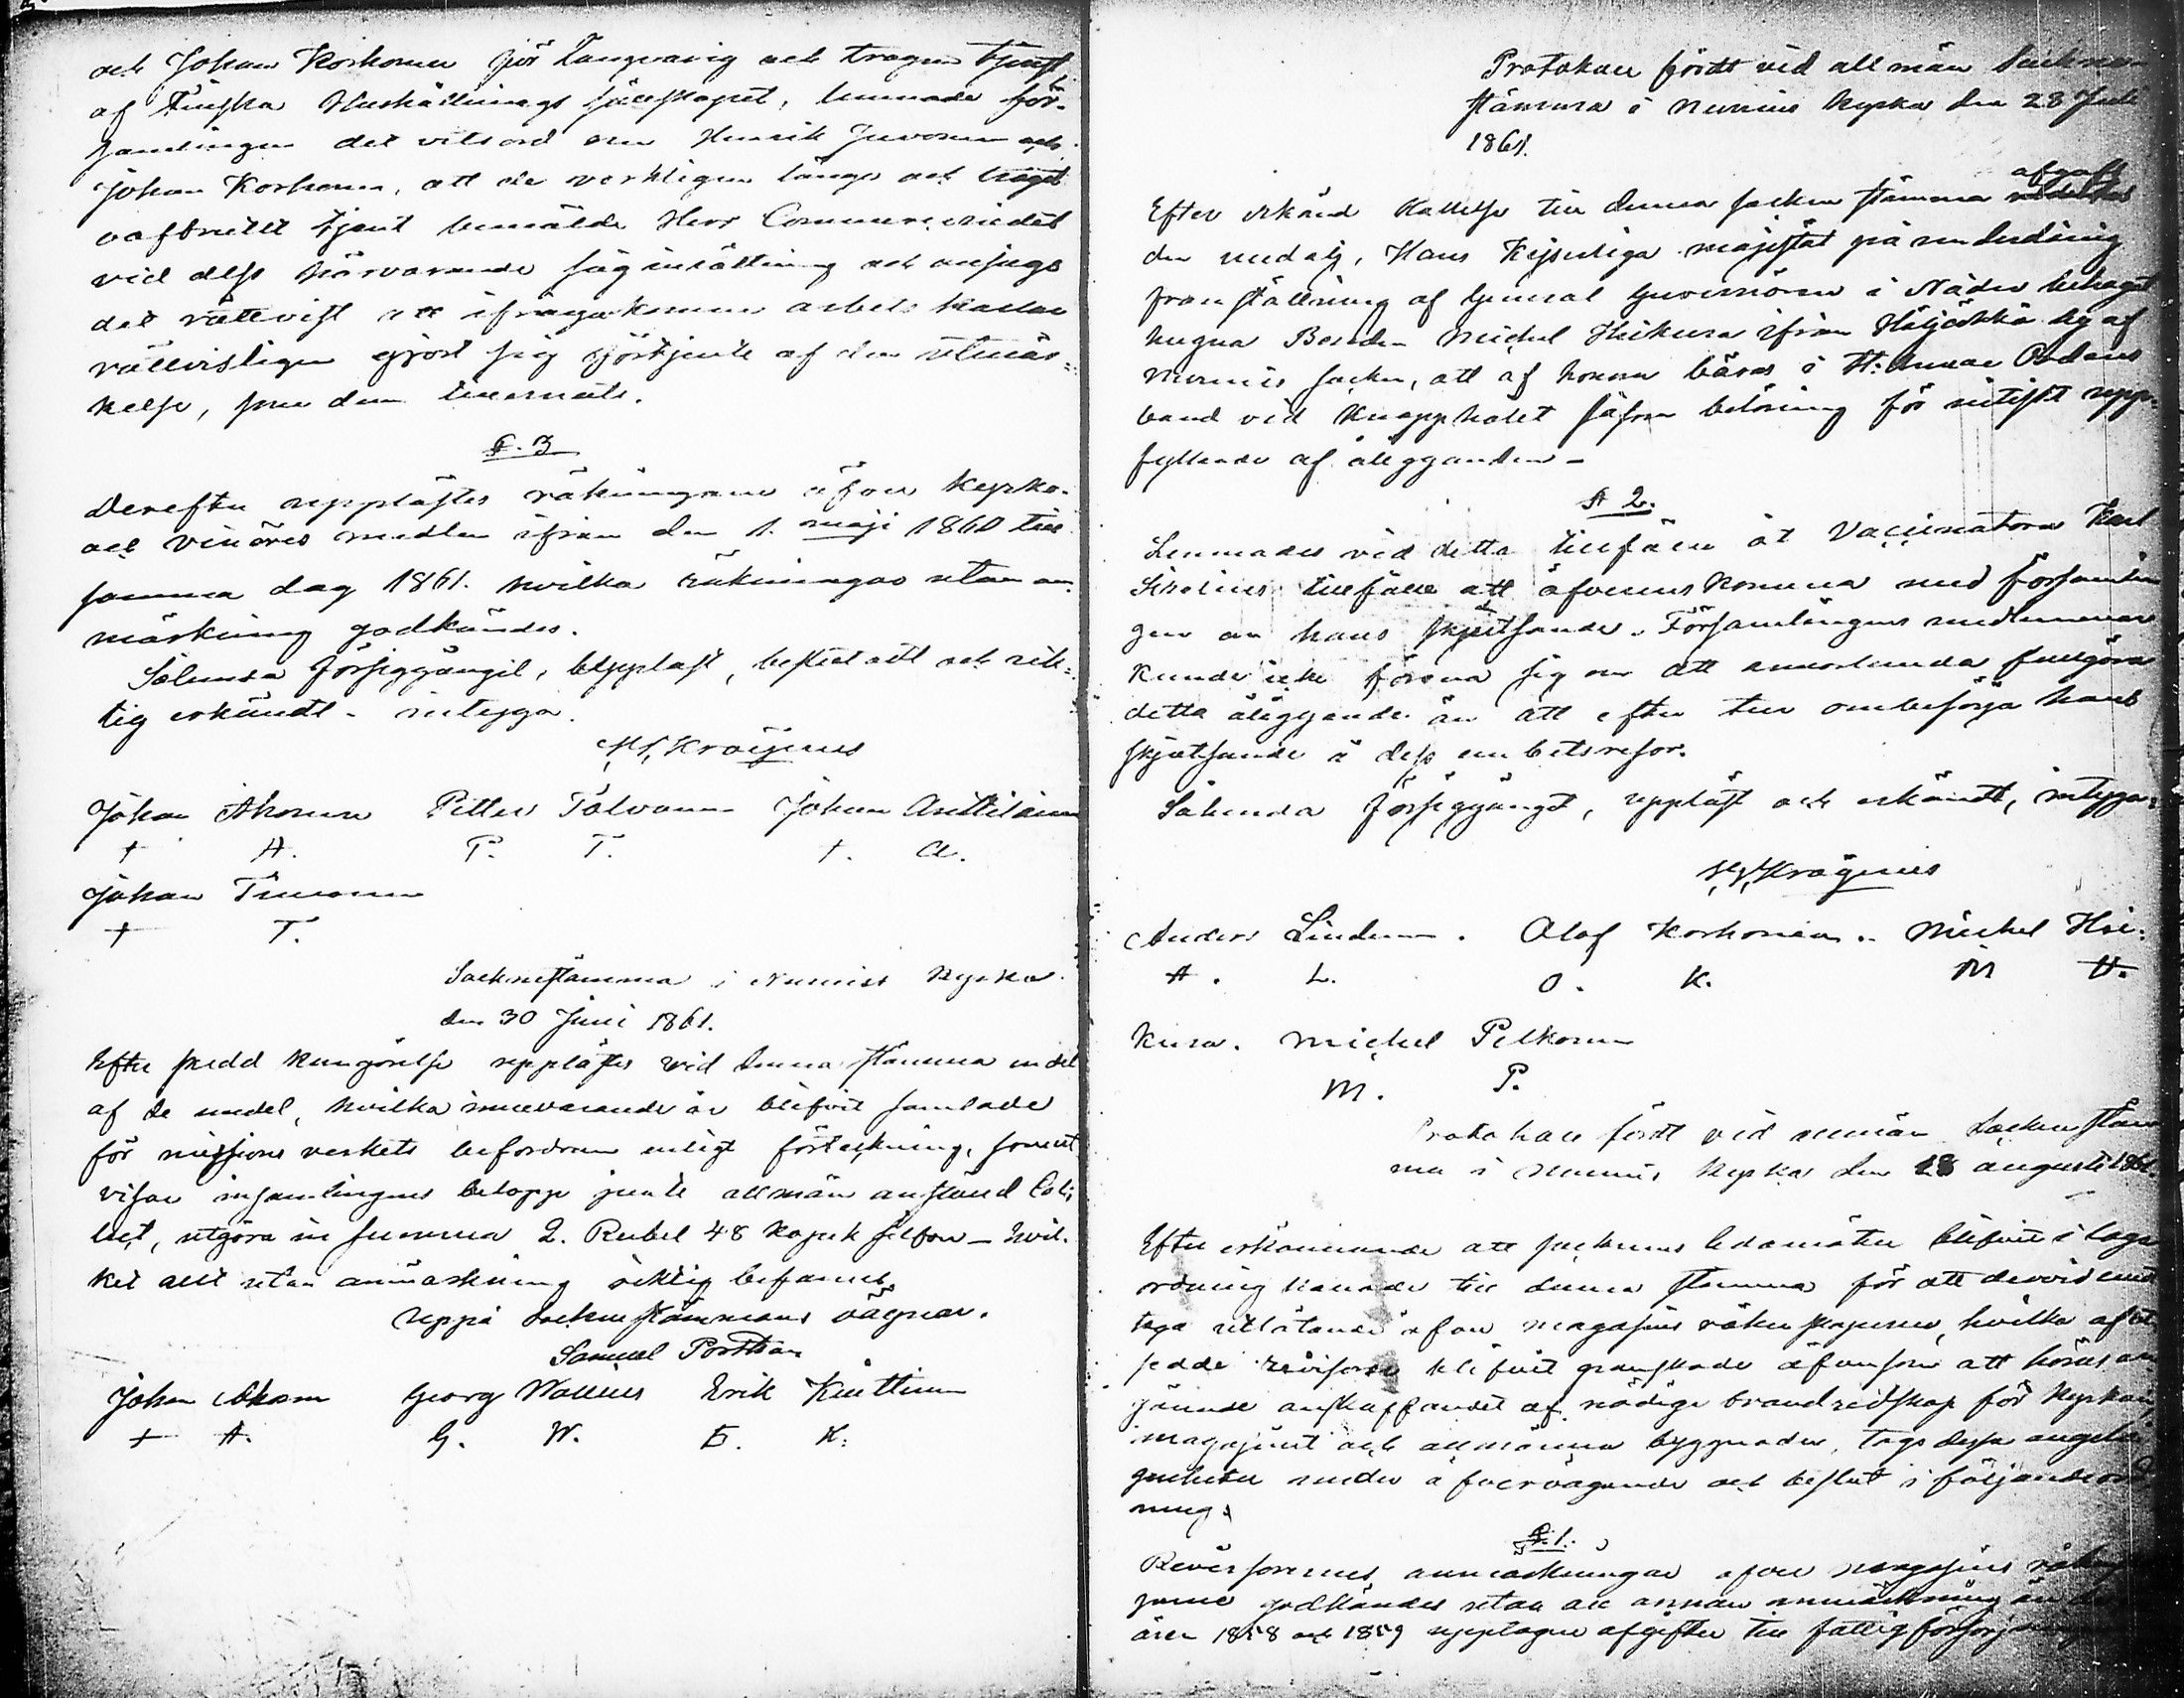 och Johan Korhonen för långvarig och trogen tjenst
af Finska Hushållnings sällskapet, lemnade för-
samlingen det vitsord om Henrik Juvonen och
Johan Korhonen, att de verkligen länge och troget
oafbrutit tjent bemälde Herr Commerserådet
vid dess härvarande såginrättning och ansågs
det rättvist att ifrågakomne arbets karlar
rättvisligen gjort sig förtjente af den utmär-
kelse, som dem tillernåts.
§. 3
Derefter upplästes räkningarne öfver kyrko-
och vinöres medlen ifrån den 1. maji 1860 till
samma dag 1861. hvilka räkningar utan an-
märkning godkändes.
Sålunda försiggångit, Uppläst, beslutadt och rik-
tig erkändt. intyga.
Krogerus
Johan Ahonen Petter Tolvanen Johan Anttilainen
+ A. P. T. +. A.
Johan Timonen
+ T.
Socknestämma i Nurmis kyrka
den 30 Juni 1861.
Efter skedd kungörelse upplästes vid denna stämma en del
af de medel, hvilka innevarande år blifvit samlade
för missions verkets befordran enligt förteckning, som ut
visar insamlingens belopp jemte allmän anstäld Col-
lect, utgöra in summa 2. Rubel 48 kopek silfver – hvil-
ket allt utan anmärkning riktig befanns.
uppå sockne stämmans vägnar.
Samuel Porthan
Johan Ahonen Georg Wallius Erik Kinttinen
+ A. G. W. E. K.
Protokoll fördt vid allmän Sockne-
stämma i Nurmis kyrka den 28 Juli
1861.
afgafs
Efter erkänd Kallelse till denna socken stämma
den medalj, Hans Kejserliga majestät på underdånig
framställning af General Guvernören i Nåder behagat
hugna Bonden Michel Heikura ifrån Höljäkkä by af
Nurmis socken, att af honom bäras i St: Annae Ordens
band vid knapphålet såsom belöning för nitiskt upp-
fyllande af åligganden –
§ 2.
Lemnades vid detta tillfälle åt Vaccinatoren Karl
Sirelius tillfälle att öfverenskomma med församlin
gen om hans skjutsande. Församlingens medlemmar
kunde icke förena sig om att annorlunda fullgöra
detta åliggande än att efter tur ombesörja hans
skjutsande i dess embetsresor.
Sålunda försiggånget, uppläst och erkändt, intyga:
Krogerus
Anders Linden. Olof Korhonen. Michel Hei-
A. L. O. K. M H.
kura. Michel Pelkonen
M. P.
Protokoll fördt vid allmän Sockenstäm
ma i Nurmis kyrka den 18 augusti 1861.
Efter erkännande att socknens ledamöter blifvit i laga
ordning kallade till denna stämma för att dervid emot
taga utlåtande öfver magasins räkenskaperne, hvilka af
revisorer blifvit granskade äfvensom att höras an
gående anskaffandet af nödige brandredskap för kyrkan,
magasinet och allmänna byggnader, togs dessa angelä
genheter under öfvervägande och beslut i följande ord
ning.
§. 1.
Revisorernes anmärkningar öfver magasins
godkändes utan all annan anmärkning än
åren 1858 och 1859 upptagne afgifter till fattigförsörjning